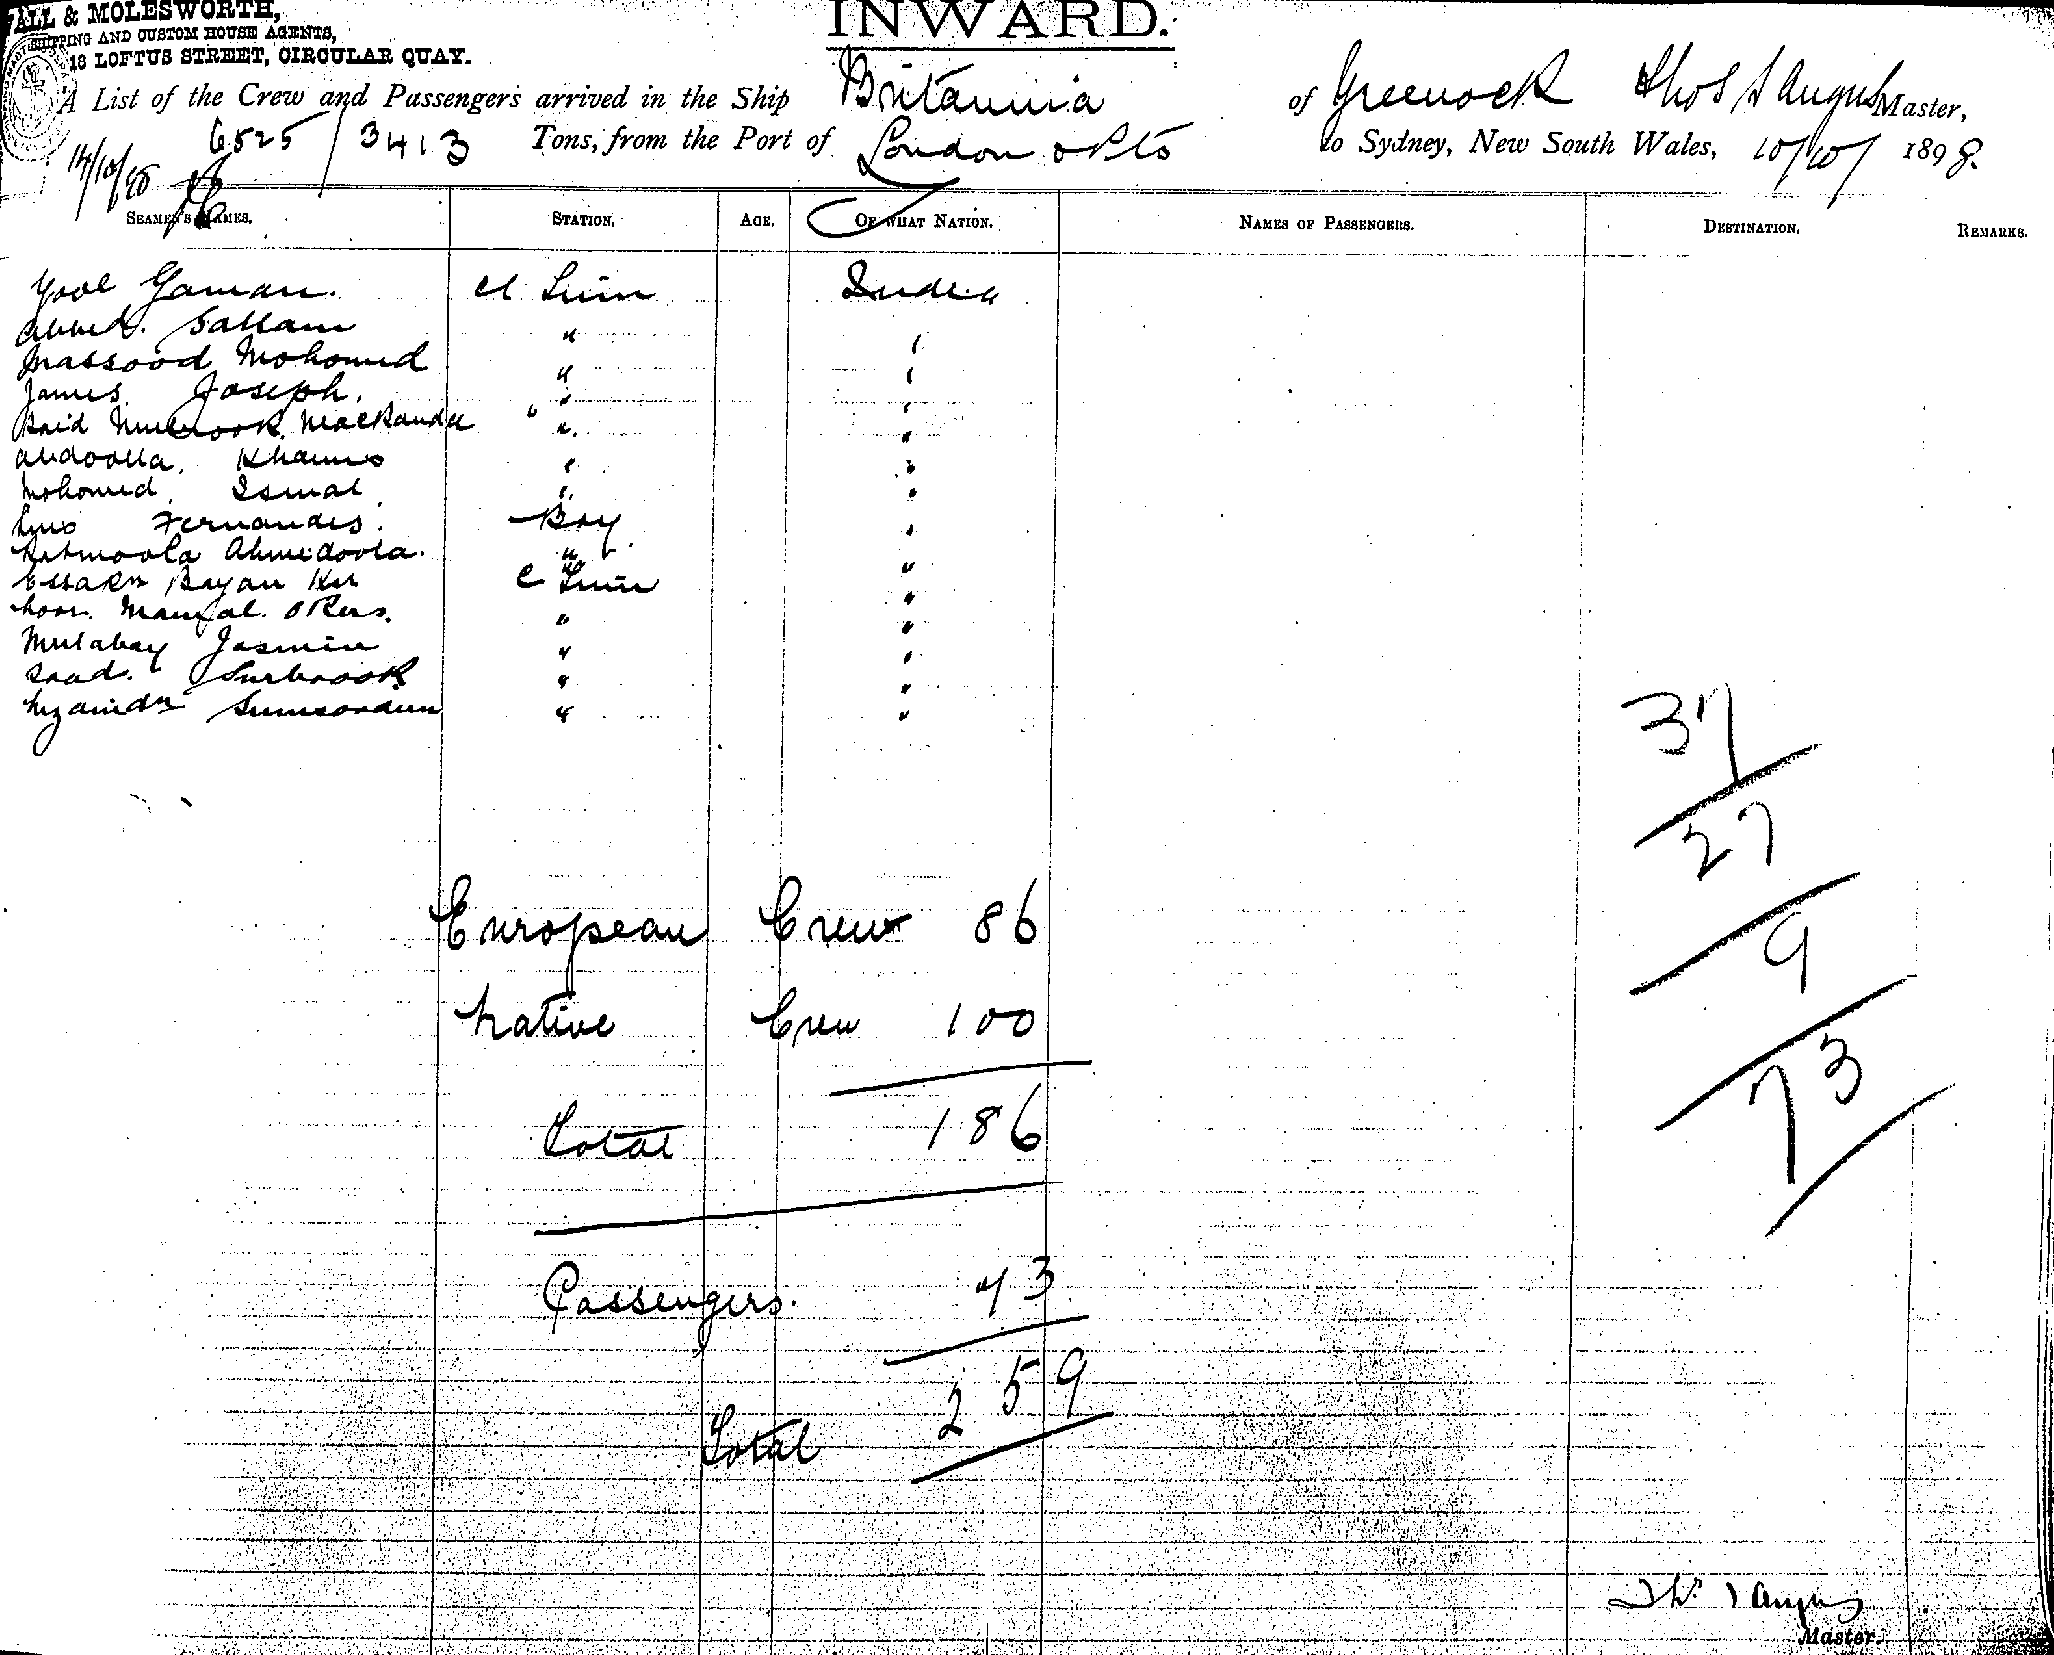 ALL & MOLESWORTH,
SHIPPING AND CUSTOM HOUSE AGENTS,
18 LOFTUS STREET, CIRCULAR QUAY.
INWARD.
A List of the Crew and Passengers arrived in the Ship Britannia of Greenock Thos S Angus Master,
6525/3413 Tons, from the Port of London & Pts to Sydney, New South Wales, 10/10/ 1898.
14/10/98
SEAMEN'S NAMES. STATION. AGE. OF WHAT NATION. NAMES OF PASSENGERS. DESTINATION. REMARKS.
India
Abbed. Sallam " "
Massood Mohomed " "
James Joseph. " "
Said Mubrook " "
Abdoolla. Khamis " "
Mohomed. Ismal " "
Fernandes. Boy "
Ahmedoola. " "
"
" "
Jasmin " "
Saad. " "
" "
37
27
9
73
European Crew 86
Native Crew 100
Total 186
Passengers. 73
Total 259
Thos S Angus
Master.